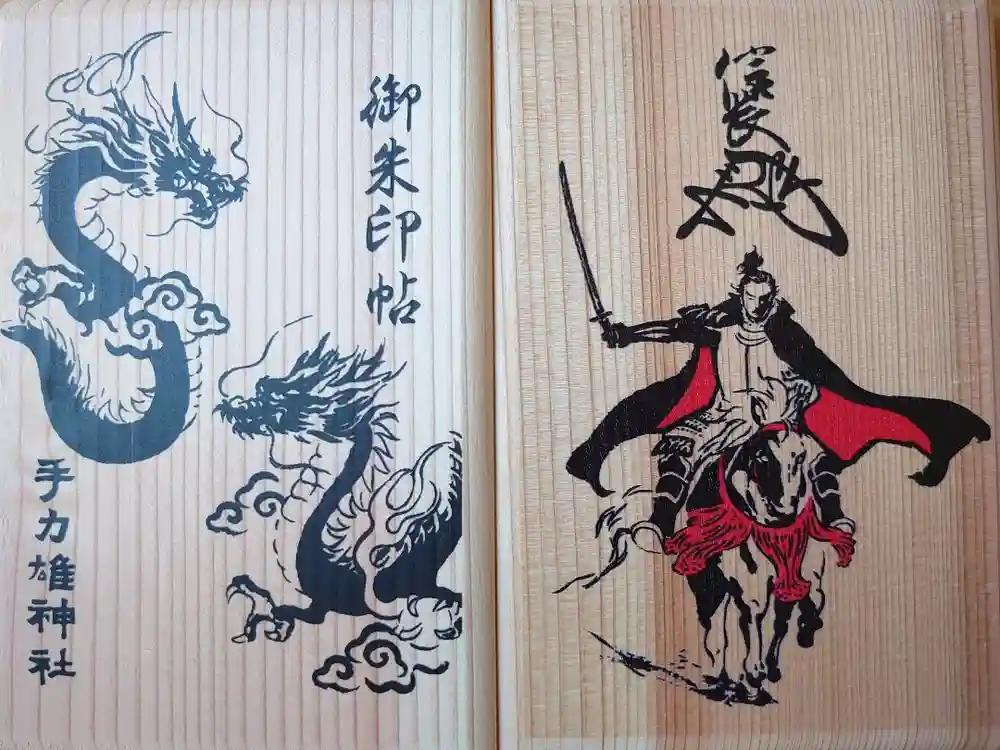 御朱印帖
手力雄神社
信長